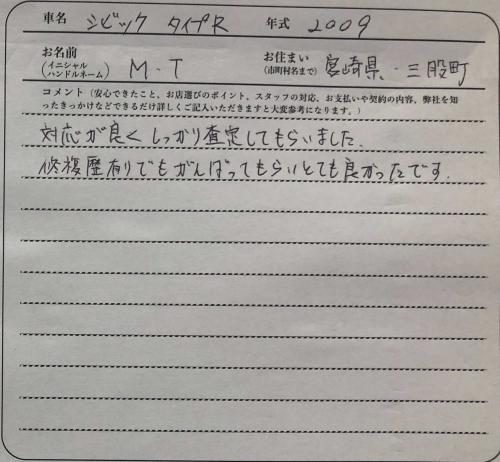 車名 シビック タイプR 年式 2009
お名前 (イニシャル ハンドルネーム) M・T お住まい (市町村名まで) 宮崎県・三股町
コメント（安心できたこと、お店選びのポイント、スタッフの対応、お支払いや契約の内容、弊社を知
ったきっかけなどできるだけ詳しくご記入いただきますと大変参考になります。）
対応が良くしっかり査定してもらいました.
修復歴有りでもがんばってもらいとても良かったです.